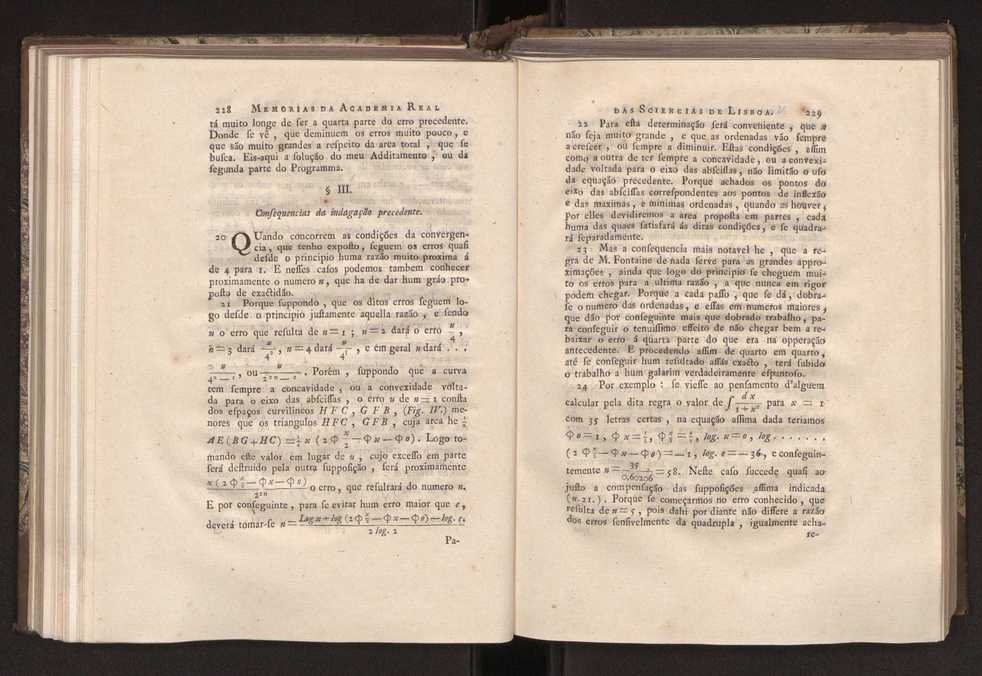 228 MEMORIAS DA ACADEMIA REAL
tá muito longe de ser a quarta parte do erro precedente.
Donde se vê, que deminuem os erros muito pouco, e
que são muito grandes a respeito da area total, que se
busca. Eis-aqui a solução do meu Additamento, ou da
segunda parte do Programma.
§ III.
Consequencias da indagação precedente.
20 QUando concorrem as condições da convergen-
cia, que tenho exposto, seguem os erros quasi
desde o principio huma razão muito proxima á
de 4 para 1. E nesses casos podemos tambem conhecer
proximamente o numero n, que ha de dar hum gráo pro-
posto de exactidão.
21 Porque suppondo, que os ditos erros seguem lo-
go desde o principio justamente aquella razão, e sendo
u o erro que resulta de n=1; n=2 dará o erro u/4,
n=3 dará u/4², n=4 dará u/4³, e em geral n dará ...
u/4^(n-1), ou u/2^(2n-1). Porém, suppondo que a curva
tem sempre a concavidade, ou a convexidade volta-
da para o eixo das abscissas, o erro u de n=1 consta
dos espaços curvilineos HFC, GFB, (Fig. IV.) me-
nores que os triangulos HFC, GFB, cuja area he ½
AE(BG+HC)=½ x (2Φ x/2 —Φx—Φo). Logo to-
mando este valor em lugar de u, cujo excesso em parte
será destruido pela outra supposição, será proximamente
x(2Φ x/2 —Φx—Φo)/2^(2n) o erro, que resultará do numero n.
E por conseguinte, para se evitar hum erro maior que e,
deverá tomar-se n= (Log x+log (2Φ x/2 —Φx—Φo)—log. e.)/(2 log. 2)
Pa-
DAS SCIENCIAS DE LISBOA. 229
22 Para esta determinação será conveniente, que x
não seja muito grande, e que as ordenadas vão sempre
a crescer, ou sempre a diminuir. Estas condições, assim
como a outra de ter sempre a concavidade, ou a convexi-
dade voltada para o eixo das abscissas, não limitão o uso
da equação precedente. Porque achados os pontos do
eixo das abscissas correspondentes aos pontos de inflexão
e das maximas, e minimas ordenadas, quando as houver,
por elles devidiremos a area proposta em partes, cada
huma das quaes satisfará ás ditas condições, e se quadra-
rá separadamente.
23 Mas a consequencia mais notavel he, que a re-
gra de M. Fontaine de nada serve para as grandes appro-
ximações, ainda que logo do principio se cheguem mui-
to os erros para a ultima razão, a que nunca em rigor
podem chegar. Porque a cada passo, que se dá, dobra-
se o numero das ordenadas, e essas em numeros maiores,
que dão por conseguinte mais que dobrado trabalho, pa-
ra conseguir o tenuissimo effeito de não chegar bem a re-
baixar o erro á quarta parte do que era na opperação
antecedente. E procedendo assim de quarto em quarto,
até se conseguir hum resultado assás exacto, terá subido
o trabalho a hum galarim verdadeiramente espantoso.
24 Por exemplo: se viesse ao pensamento d'alguem
calcular pela dita regra o valor de ∫ dx/(1+x²) para x=1
com 35 letras certas, na equação assima dada teriamos
Φo=1, Φx=½, Φ x/2 = 4/5, log. x=0, log.......
(2Φ x/2 —Φx—Φo)=—1, log. e=—36, e conseguin-
temente n= 35/0,60206 =58. Neste caso succede quasi ao
justo a compensação das supposições assima indicada
(n. 21.). Porque se começarmos no erro conhecido, que
resulta de n=5, pois dahi por diante não differe a razão
dos erros sensivelmente da quadrupla, igualmente acha-
re-